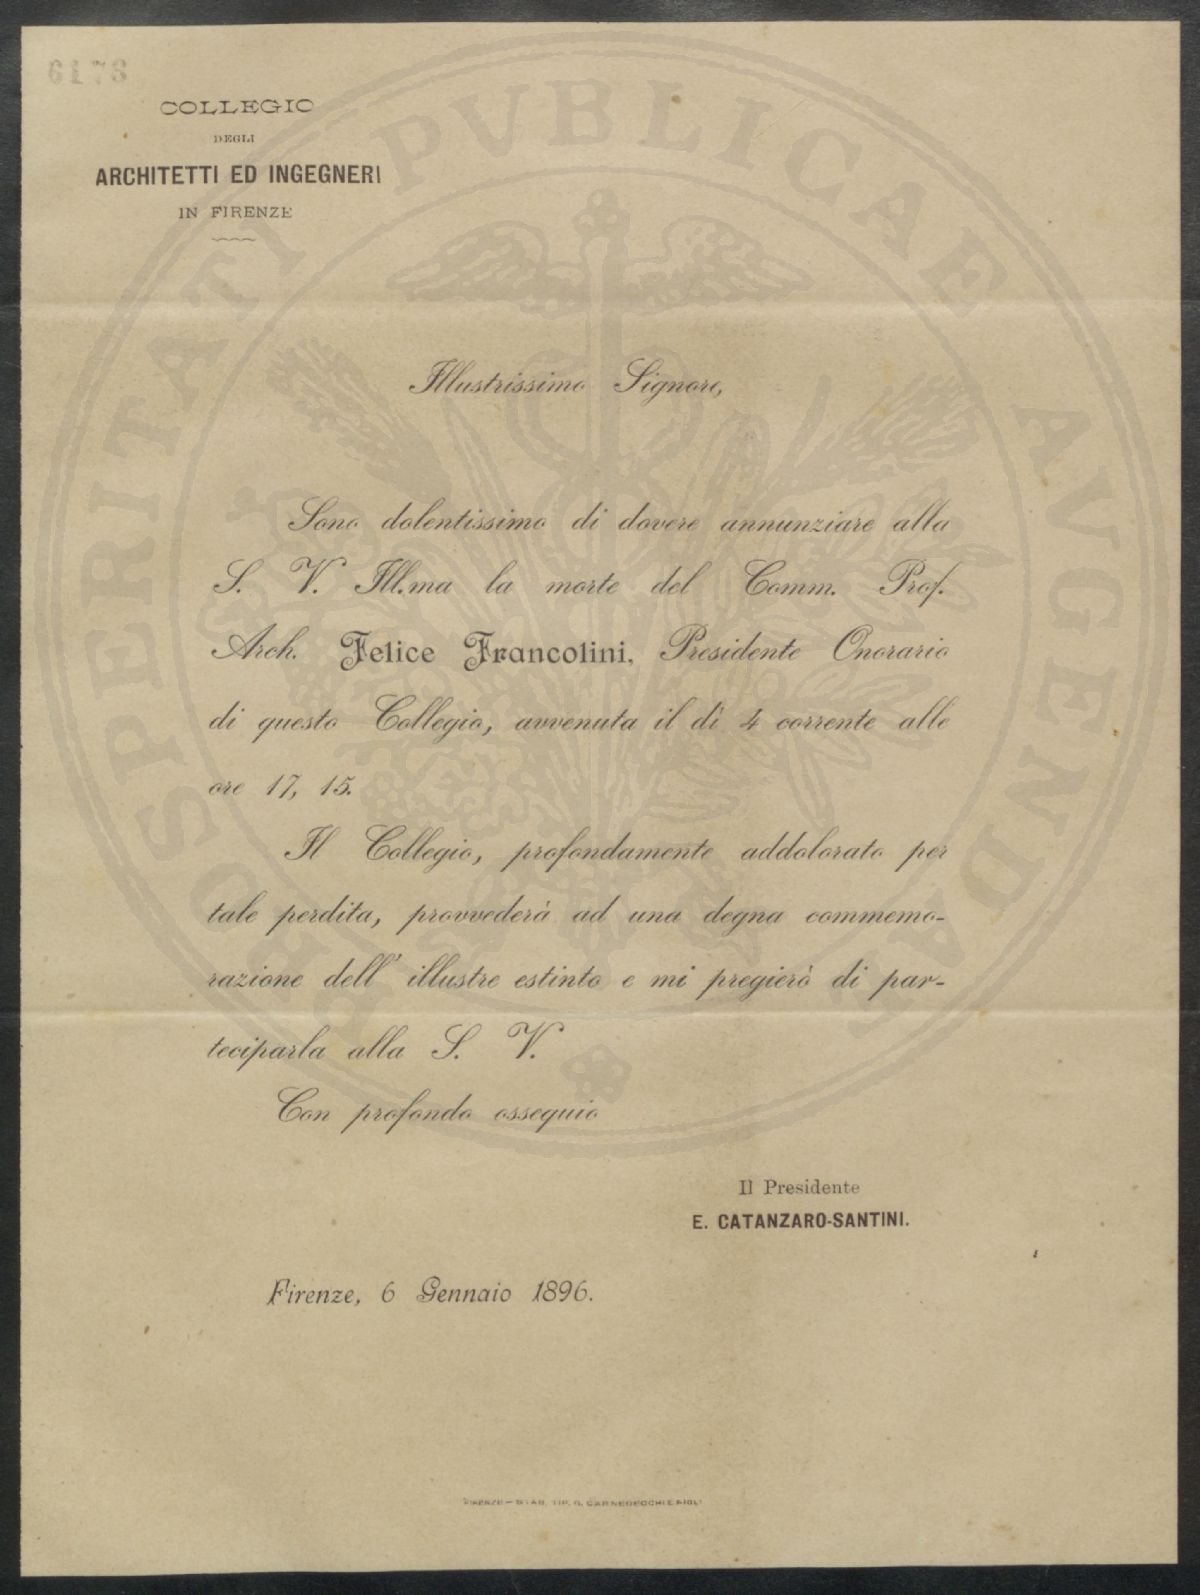 6178
COLLEGIO
DEGLI
ARCHITETTI ED INGEGNERI
IN FIRENZE
PROSPERITATI PVBLICAE AVGENDAE
Illustrissimo Signore,
Sono dolentissimo di dovere annunziare alla
S. V. Ill.ma la morte del Comm. Prof.
Arch. Felice Francolini, Presidente Onorario
di questo Collegio, avvenuta il dì 4 corrente alle
ore 17, 15.
Il Collegio, profondamente addolorato per
tale perdita, provvederà ad una degna commemo-
razione dell' illustre estinto e mi pregierò di par-
teciparla alla S. V.
Con profondo ossequio
Il Presidente
E. CATANZARO-SANTINI.
Firenze, 6 Gennaio 1896.
FIRENZE — STAB. TIP. G. CARNESECCHI E FIGLI